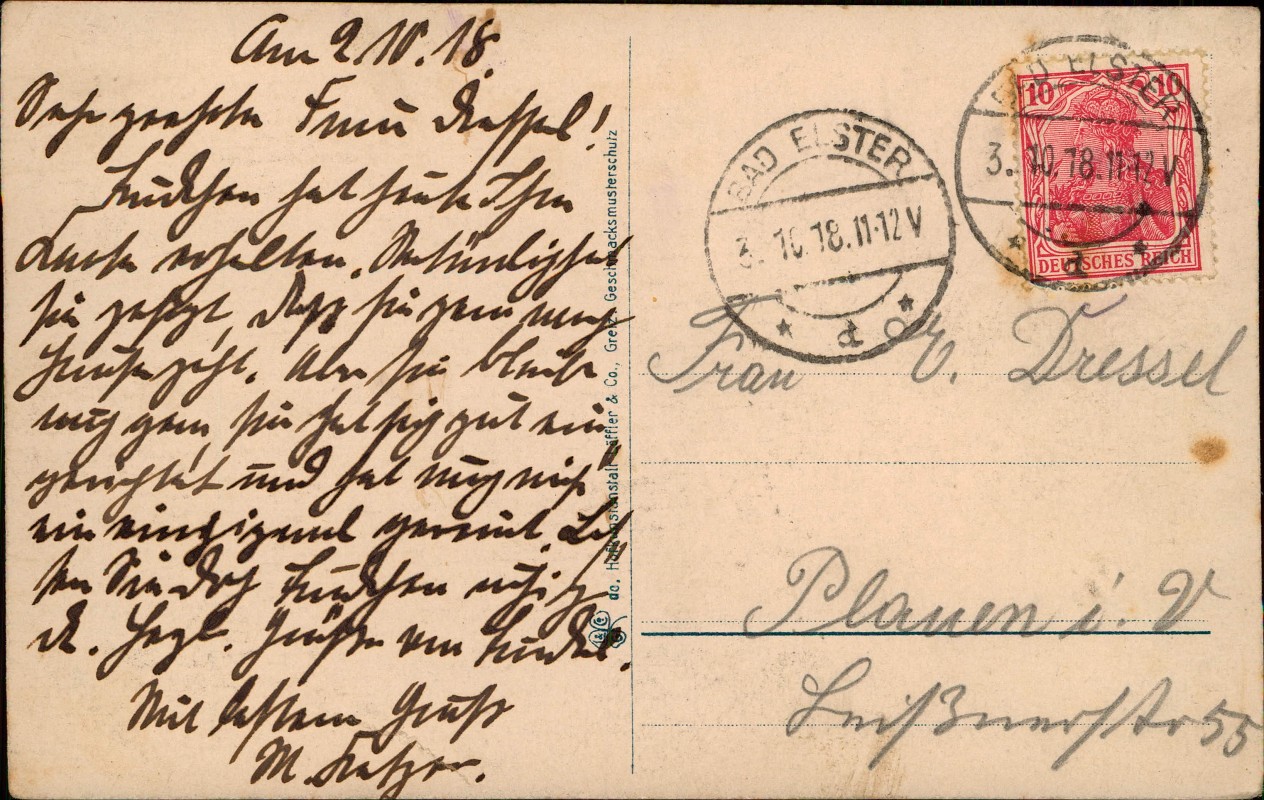 Am 2.10.18.
Sehr geehrte Frau Dressel!
hat heute Ihre
Karte erhalten.
sie gesagt, daß sie gern nach
Hause geht. Aber sie bleibt
auch gern, sie hat sich gut ein
gerichtet und hat auch nicht
ein einzigmal geweint. Las
sen Sie doch ruhig
d. Herzl. Grüße von
Mit bestem Gruß
M.
do. Hofkunstanstalt Löffler & Co., Greiz. Geschmacksmusterschutz
BAD ELSTER
3. 10.18.11-12V
* d *
BAD ELSTER
3. 10.18.11-12V
* d *
10 10
DEUTSCHES REICH
Frau E. Dressel
Plauen i. V
Leißnerstr 55